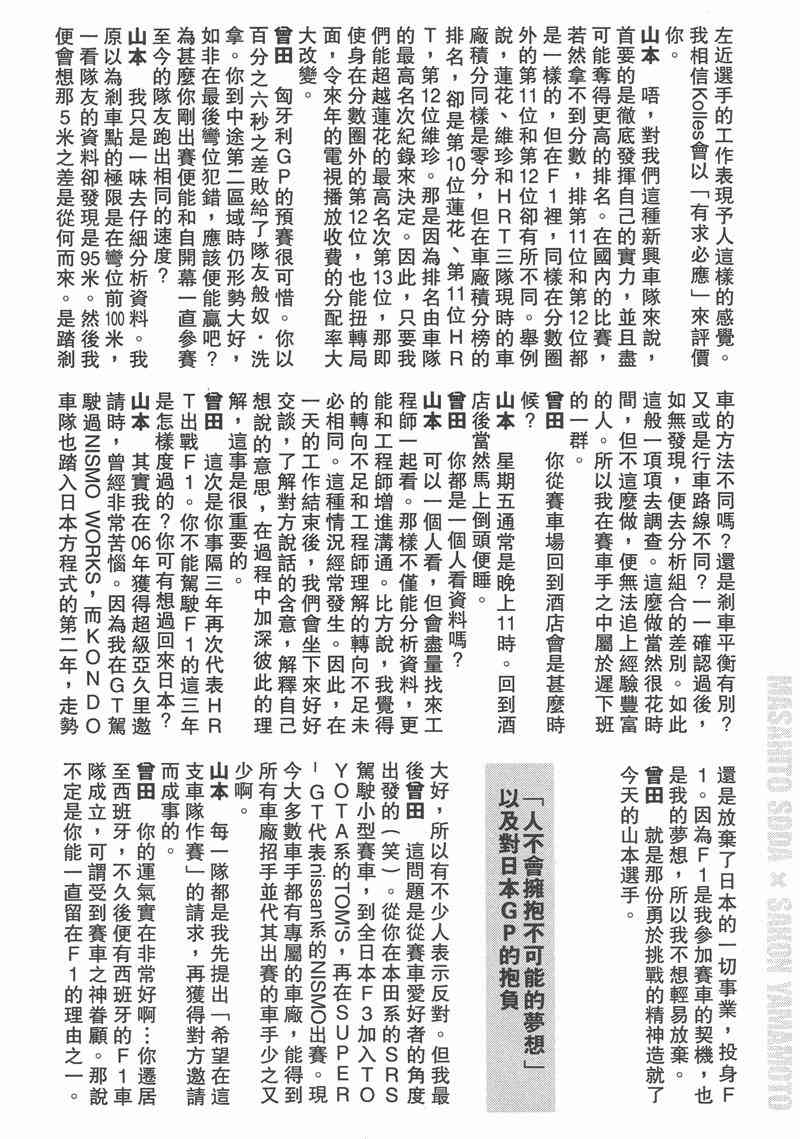 左近選手的工作表現予人這樣的感覺。
我相信Kolles會以「有求必應」來評價
你。
山本　唔，對我們這種新興車隊來說，
首要的是徹底發揮自己的實力，並且盡
可能奪得更高的排名。在國內的比賽，
若然拿不到分數，排第11位和第12位都
是一樣的，但在F1裡，同樣在分數圈
外的第11位和第12位卻有所不同。舉例
說，蓮花、維珍和HRT三隊現時的車
廠積分同樣是零分，但在車廠積分榜的
排名，卻是第10位蓮花、第11位HR
T，第12位維珍。那是因為排名由車隊
的最高名次紀錄來決定。因此，只要我
們能超越蓮花的最高名次第13位，那即
使身在分數圈外的第12位，也能扭轉局
面，令來年的電視播放收費的分配率大
大改變。
曾田　匈牙利GP的預賽很可惜。你以
百分之六秒之差敗給了隊友般奴．洗
拿。你到中途第二區域時仍形勢大好，
如非在最後彎位犯錯，應該便能贏吧？
為甚麼你剛出賽便能和自開幕一直參賽
至今的隊友跑出相同的速度？
山本　我只是一味去仔細分析資料。我
原以為剎車點的極限是在彎位前100米，
一看隊友的資料卻發現是95米。然後我
便會想那5米之差是從何而來。是踏剎
車的方法不同嗎？還是剎車平衡有別？
又或是行車路線不同？一一確認過後，
如無發現，便去分析組合的差別。如此
這般一項項去調查。這麼做當然很花時
間，但不這麼做，便無法追上經驗豐富
的人。所以我在賽車手之中屬於遲下班
的一群。
曾田　你從賽車場回到酒店會是甚麼時
候？
山本　星期五通常是晚上11時。回到酒
店後當然馬上倒頭便睡。
曾田　你都是一個人看資料嗎？
山本　可以一個人看，但會盡量找來工
程師一起看。那樣不僅能分析資料，更
能和工程師增進溝通。比方說，我覺得
的轉向不足和工程師理解的轉向不足未
必相同。這種情況經常發生。因此，在
一天的工作結束後，我們會坐下來好好
交談，了解對方說話的含意，解釋自己
想說的意思，在過程中加深彼此的理
解，這事是很重要的。
曾田　這次是你事隔三年再次代表HR
T出戰F1。你不能駕駛F1的這三年
是怎樣度過的？你可有想過回來日本？
山本　其實我在06年獲得超級亞久里邀
請時，曾經非常苦惱。因為我在GT駕
駛過NISMO WORKS，而KONDO
車隊也踏入日本方程式的第二年，走勢
大好，所以有不少人表示反對。但我最
後還是放棄了日本的一切事業，投身F
1。因為F1是我參加賽車的契機，也
是我的夢想，所以我不想輕易放棄。
曾田　就是那份勇於挑戰的精神造就了
今天的山本選手。
「人不會擁抱不可能的夢想」
以及對日本GP的抱負
曾田　這問題是從賽車愛好者的角度
出發的（笑）。從你在本田系的SRS
駕駛小型賽車，到全日本F3加入TO
YOTA系的TOM'S，再在SUPER
-GT代表nissan系的NISMO出賽。現
今大多數車手都有專屬的車廠，能得到
所有車廠招手並代其出賽的車手少之又
少啊。
山本　每一隊都是我先提出「希望在這
支車隊作賽」的請求，再獲得對方邀請
而成事的。
曾田　你的運氣實在非常好啊…你遷居
至西班牙，不久後便有西班牙的F1車
隊成立，可謂受到賽車之神眷顧。那說
不定是你能一直留在F1的理由之一。
MASAHITO SODA × SAKON YAMAMOTO